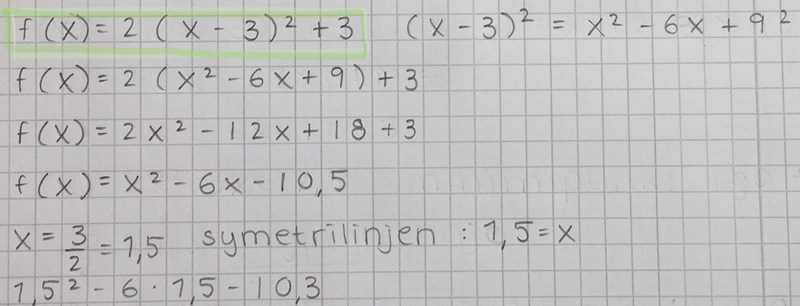 f(x) = 2(x - 3)² + 3    (x - 3)² = x² - 6x + 9²
f(x) = 2(x² - 6x + 9) + 3
f(x) = 2x² - 12x + 18 + 3
f(x) = x² - 6x - 10,5
x = 3/2 = 1,5  symetrilinjen : 1,5 = x
1,5² - 6 · 1,5 - 10,3